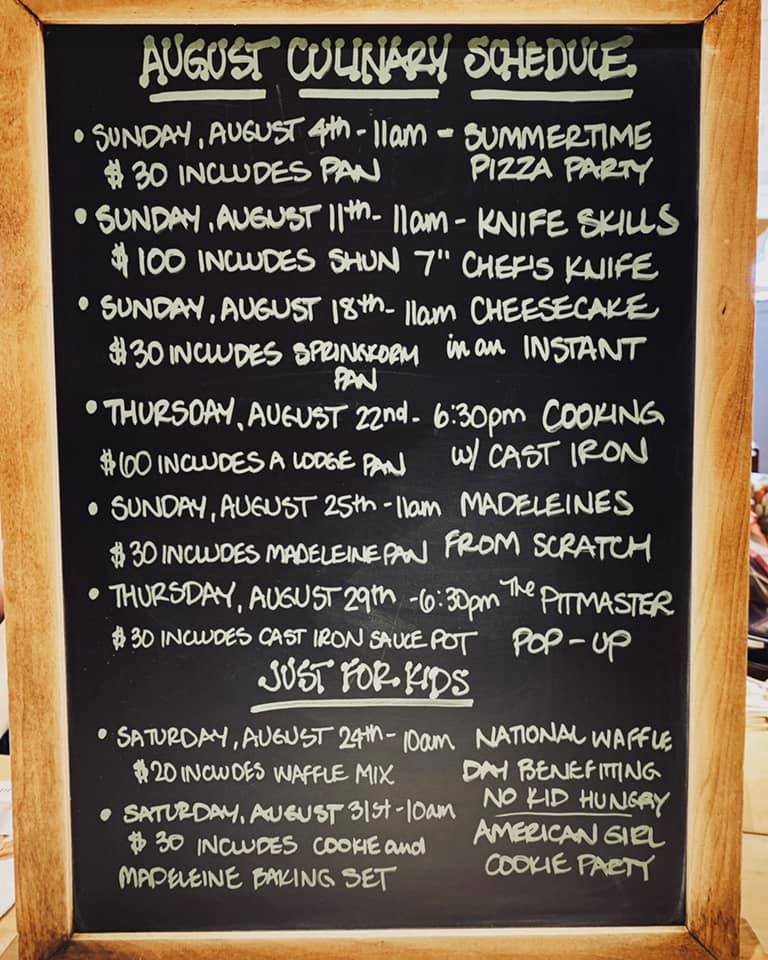 AUGUST CULINARY SCHEDULE
• SUNDAY, AUGUST 4th - 11am - SUMMERTIME
$30 INCLUDES PAN PIZZA PARTY
• SUNDAY, AUGUST 11th - 11am - KNIFE SKILLS
$100 INCLUDES SHUN 7" CHEF'S KNIFE
• SUNDAY, AUGUST 18th - 11am CHEESECAKE
$30 INCLUDES SPRINGFORM in an INSTANT
PAN
• THURSDAY, AUGUST 22nd - 6:30pm COOKING
$60 INCLUDES A LODGE PAN W/ CAST IRON
• SUNDAY, AUGUST 25th - 11am MADELEINES
$30 INCLUDES MADELEINE PAN FROM SCRATCH
• THURSDAY, AUGUST 29th - 6:30pm The PITMASTER
$30 INCLUDES CAST IRON SAUCE POT POP-UP
JUST FOR KIDS
• SATURDAY, AUGUST 24th - 10am NATIONAL WAFFLE
$20 INCLUDES WAFFLE MIX DAY BENEFITING
NO KID HUNGRY
• SATURDAY, AUGUST 31st - 10am AMERICAN GIRL
$30 INCLUDES COOKIE and COOKIE PARTY
MADELEINE BAKING SET